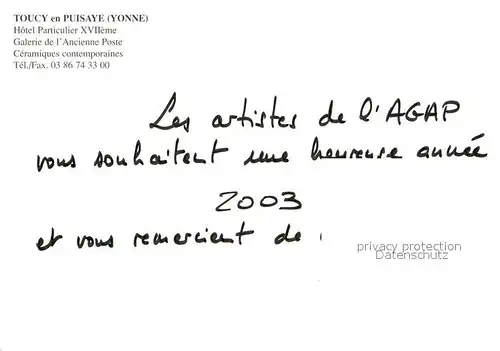 TOUCY en PUISAYE (YONNE)
Hôtel Particulier XVIIème
Galerie de l'Ancienne Poste
Céramiques contemporaines
Tél./Fax. 03 86 74 33 00
Les artistes de l'AGAP
vous souhaitent une heureuse année
2003
et vous remercient de
privacy protection
Datenschutz